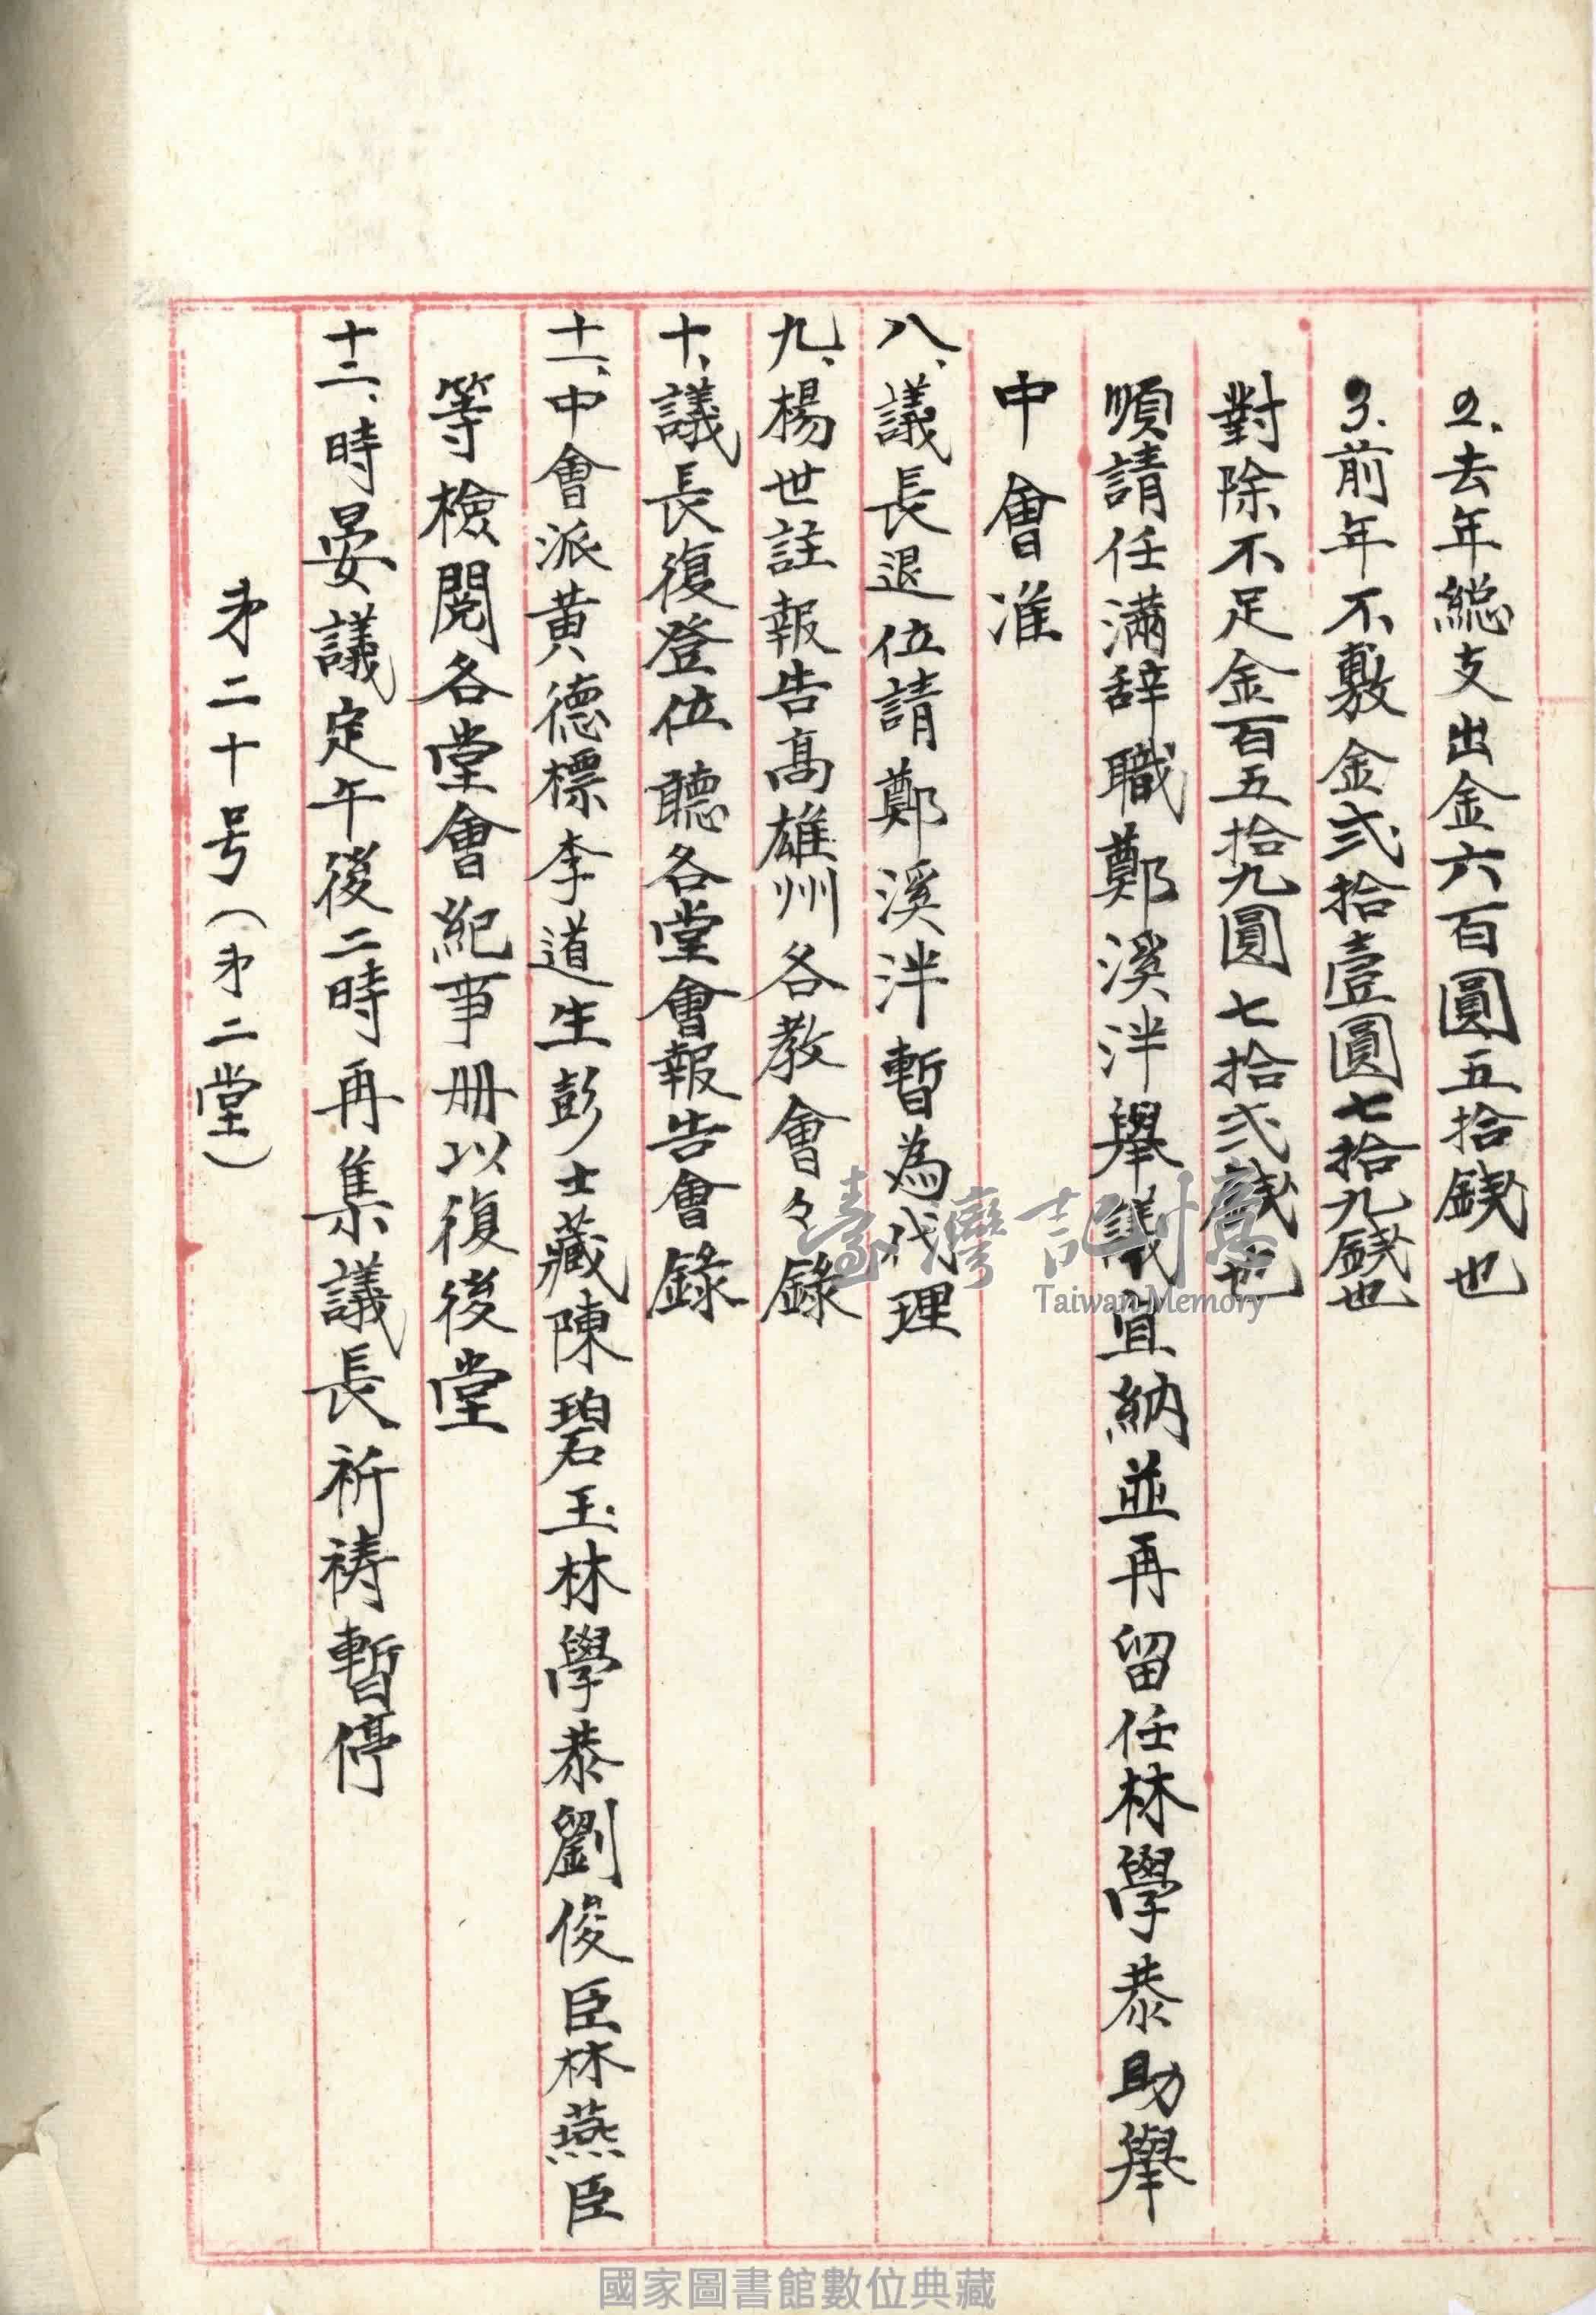 2、去年総支出金六百圓五拾錢也
3、前年不敷金弍拾壹圓七拾九錢也
對除不足金百五拾九圓七拾弍錢也
順請任滿辞職鄭溪泮舉議宜納並再留任林學恭助舉
中會准
八、議長退位請鄭溪泮暫為代理
九、楊世註報告高雄州各教會々錄
十、議長復登位聽各堂會報告會錄
十一、中會派黄德標李道生彭士藏陳碧玉林學恭劉俊臣林燕臣
等檢閱各堂會紀事册以復後堂
十二、時晏議定午後二時再集議長祈祷暫停
㐧二十号(㐧二堂)
臺灣記憶
Taiwan Memory
國家圖書館數位典藏